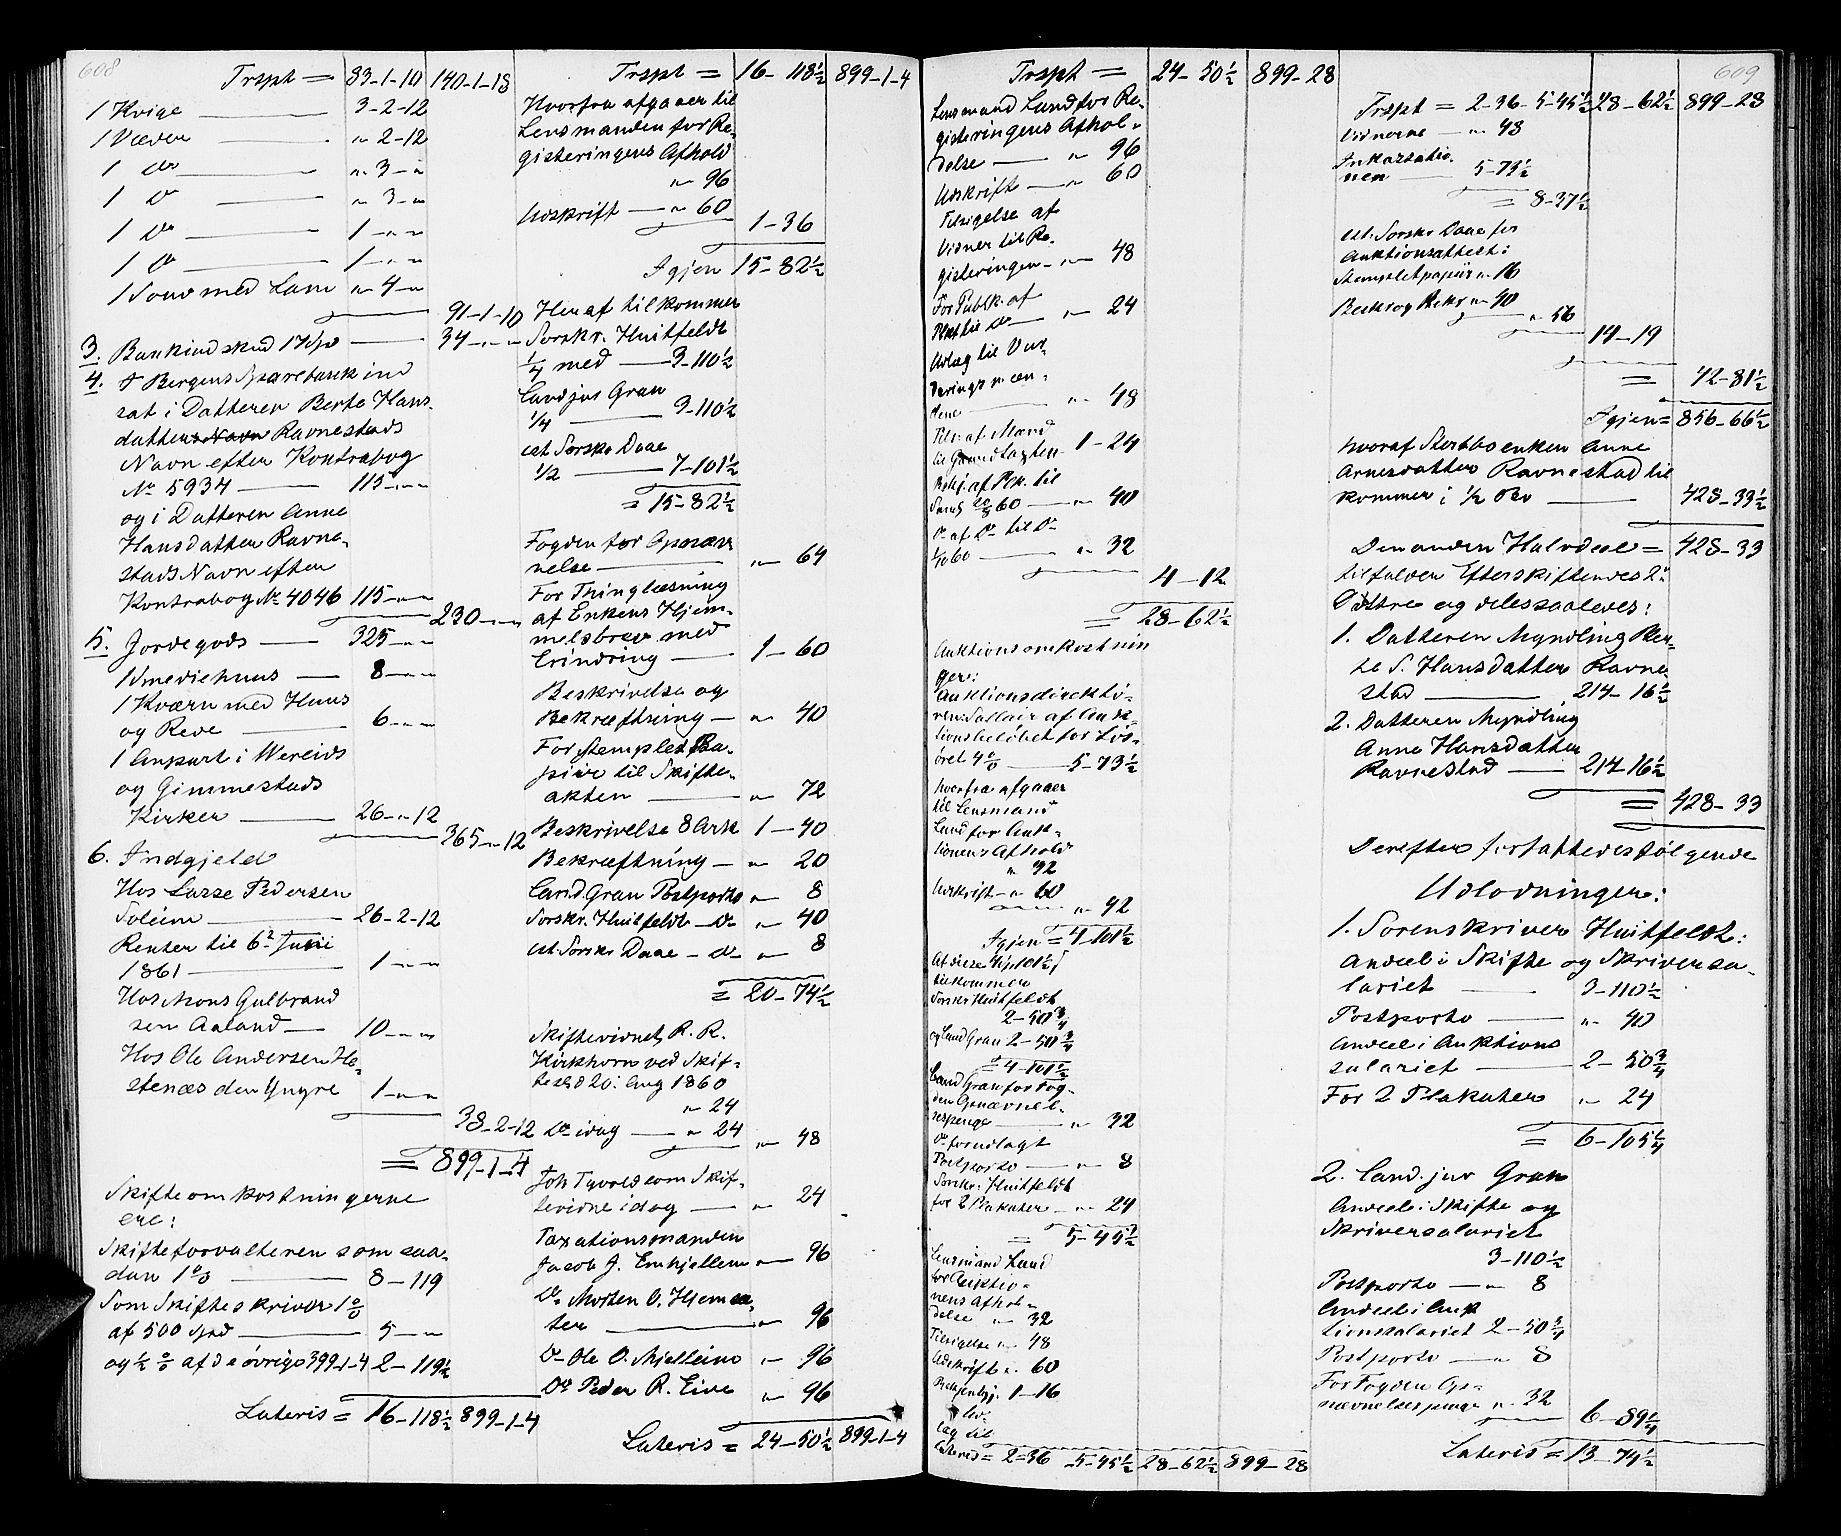 608
Trspt = 83-1-10 140-1-18
1 Kvige — 3-2-12
1 Væder — " 2-12
1 do — " 3 - "
1 do — " 3 - "
1 do — 1 - " - "
1 do — 1 - " - "
1 Soue med Lam " 4 - "
91-1-10
3. Bankindskud 17 Spd — 34 - " - "
4. I Bergens Sparebank ind
sat i Datteren Berte Hans-
datters Navn Ravnestads
Navn efter Kontrabog
No 5934 — 115 - " - "
og i Datteren Anne
Hansdatter Ravne-
stads Navn efter
Kontrabog No 4046 115 - " - "
230 - " - "
5. Jordegods — 325 - " - "
1 Smediehuus — 8 - " - "
1 Kværn med Huus
og Reve — 6 - " - "
1 Anpart i Wereids
og Gimmestads
Kirker — 26 - " - 12
365 - " - 12
6. Indgjeld
Hos Lasse Pedersen
Soleim — 26-2-12
Renter til 6te Juni
1861 — 1 - " - "
Hos Mons Gulbrand
sen Aaland — 10 - " - "
Hos Ole Andersen He-
stenæs den Yngre 1 - " - "
38-2-12
= 899-1-4
Skifteomkostningerne
ere:
Skifteforvalteren som saa-
dan 1 % — 8-119
Som Skifteskriver 1 %
af 500 Spd — 5 - "
og ½ % af de øvrige 399-1-4 2-119½
Lateris = 16-118½ 899-1-4
Trspt = 16-118½ 899-1-4
Hvorfra afgaaer til
Lensmanden for Re-
gisteringens Afhold
" 96
Udskrift — " 60
1-36
Igjen 15-82½
Heraf tilkommer
Sorskr. Huitfeldt
¼ med — 3-110½
Cand jur Gran
¼ — 3-110½
cst. Sorskr Daae
½ — 7-101½
= 15-82½
Fogden for Opnæv
nelse — " 64
For Thinglæsning
af Enkens Hjem-
melsbrev med
Erindring — 1-60
Beskrivelse og
Bekræftning — " 40
For stemplet Pa-
piir til Skifte-
akten — " 72
Beskrivelse 8 Ark 1-40
Bekræftning — " 20
Cand. Gran Postporto " 8
Sorskr. Huitfeldt — do " 40
cst. Sorskr Daae — do " 8
= 20-74½
Skiftevidnet R. R.
Kirkhorn ved Skif-
te sLd 20: Aug 1860
" 24
do idag — " 24
" 48
Joh Tyvold som Skif-
tevidne idag — " 24
Taxationsmanden
Jacob J. Emhjellen " 96
do Morten O. Hjemse-
ter — " 96
do Ole O. Mjelleim " 96
do Peder R. Eive " 96
Lateris = 24-50½ 899-1-4
Trspt = 24-50½ 899-28
Lensmand Lund for Re-
gisteringens Afhol-
delse — " 96
Udskrift — " 60
Tilsigelse af
Vidner til Re-
gisteringen — " 48
For Publk. af
Plkt til do — " 24
Udlæg til Vur-
deringsmæn-
dene — " 48
Tils. af Mænd
til Grundtaxten 1-24
Bekj. af Plk. til
Saml 20/8 60 — " 40
do af do til do
1/10 60 — " 32
4-12
= 28-62½
Auktionsomkostnin
ger:
Auktionsdirektø-
rens Sallair af Auk-
tionsbeløbet for Løs-
øret 4 % — 5-73½
hvorfra afgaaer
til Lensmand
Lund for Auk-
tionens Afhold
" 32
Udskrift " 60
" 92
Igjen = 4-101½
Af disse 4 Sp 101½ s
tilkommer
Sorskr Huitfeldt
2-50¾
og Cand Gran 2-50¾
= 4-101½
Cand Gran for Fog-
den Opnævnel-
sespenge — " 32
do forudlagt
Postporto — " 8
Sorskr. Huitfeldt
for 2 Plakater " 24
= 5-45½
Lensmand Lund
for Auktio-
nens Afhol-
delse " 32
Tilsigelse " 48
Udskrift " 60
Lateris = 2-36 5-45½ 28-62½ 899-28
609
Trspt = 2-36-5-45½ 28-62½ 899-28
Vidnerne — " 48
Inkassatio-
nen — 5-73½
= 8-37½
cst. Sorskr Daae for
Auktionsattest:
Stempletpapiir " 16
Beskr og Bekr " 40
" 56
14-19
= 42-81½
Igjen = 856-66½
hvoraf Sterbboenken Anne
Arnesdatter Ravnestad til
kommer i ½ Bo — 428-33½
Den anden Halvdeel = 428-33
tilfalder Efterskiftendes 2de
Døttre og deles saaledes:
1. Datteren Myndling Ber-
te S. Hansdatter Ravne
stad — 214-16½
2. Datteren Myndling
Anne Hansdatter
Ravnestad — 214-16½
= 428-33
Derefter forfattedes følgende
Udlodninger:
1. Sorenskriver Huitfeldt:
Andeel i Skifte og Skriversa-
lariet — 3-110½
Postporto — " 40
Andeel i Auktions
salariet — 2-50¾
For 2 Plakater " 24
= 6-105¼
2. Cand. jur Gran
Andeel i Skifte og
Skriversalariet
3-110½
Postporto — " 8
Andeel i Auk
tionssalariet 2-50¾
Postporto — " 8
For Fogden Op-
nævnelsespenge " 32
6-89¼
Lateris = 13-74½